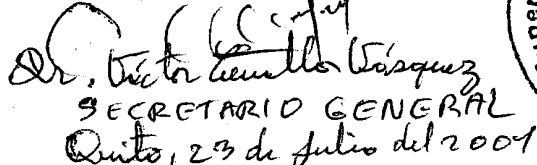 Dr. Víctor Cevallos Vásquez
SECRETARIO GENERAL
Quito, 23 de Julio del